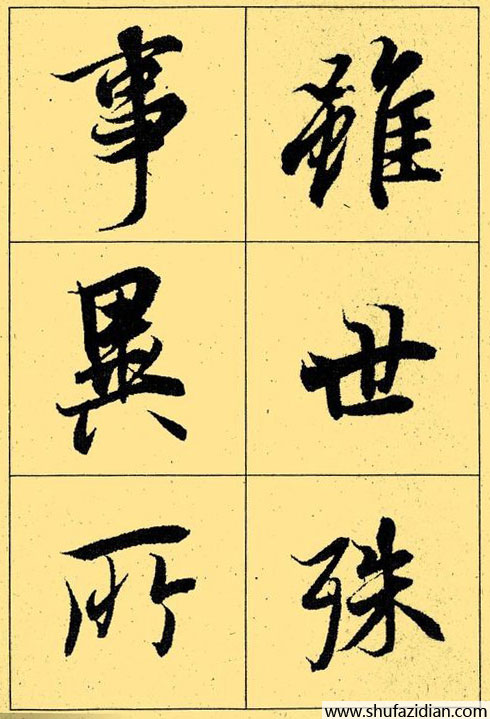 雖世殊
事異所
www.shufazidian.com